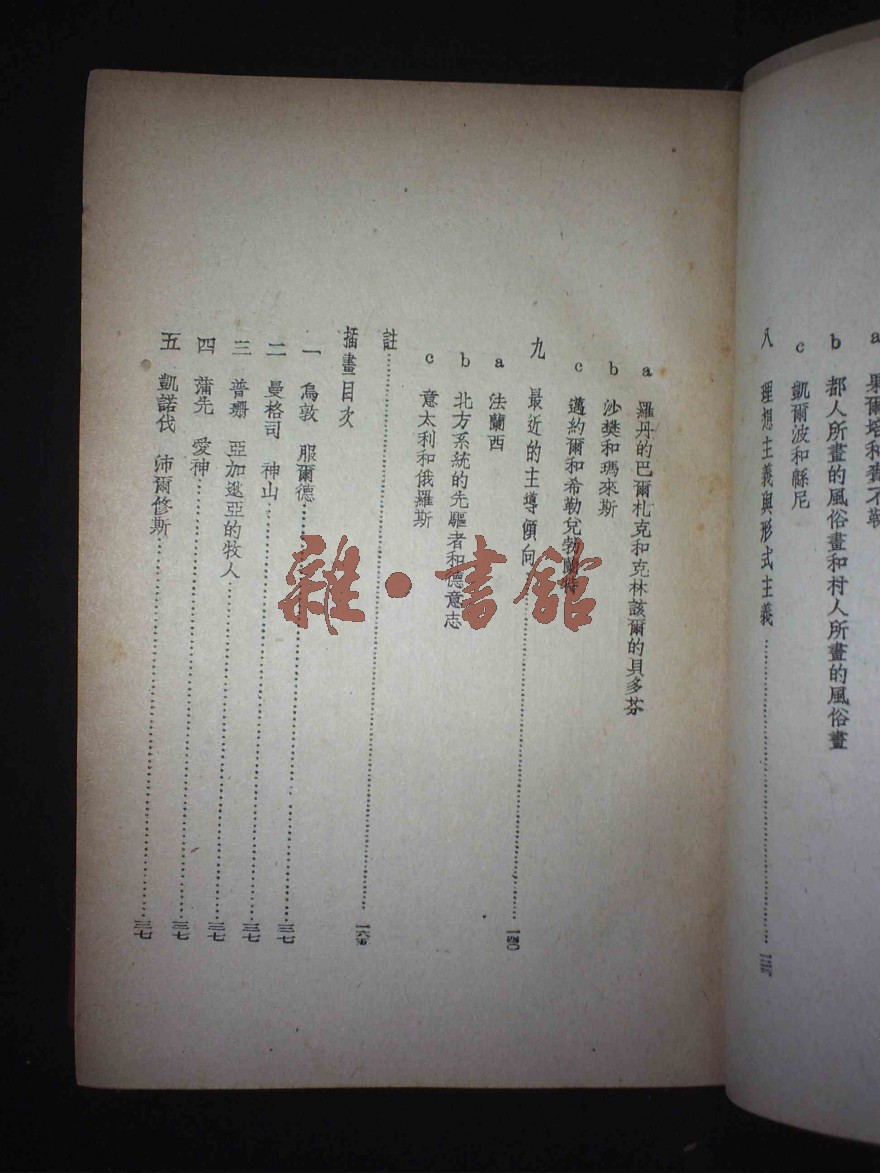 b 都人所畫的風俗畫和村人所畫的風俗畫
c 凱爾波和縣尼
八 理想主義與形式主義
a 羅丹的巴爾札克和克林該爾的貝多芬
b 沙樊和瑪來斯
c 邁約爾和希勒兌勃蘭特
九 最近的主導傾向 一四〇
a 法蘭西
b 北方系統的先驅者和德意志
c 意太利和俄羅斯
註
插畫目次
一 烏敦 服爾德 三七
二 曼格司 神山 三七
三 普珊 亞加逖亞的牧人 三七
四 蒲先 愛神 三七
五 凱諾伐 沛爾修斯 三七
雜·書館